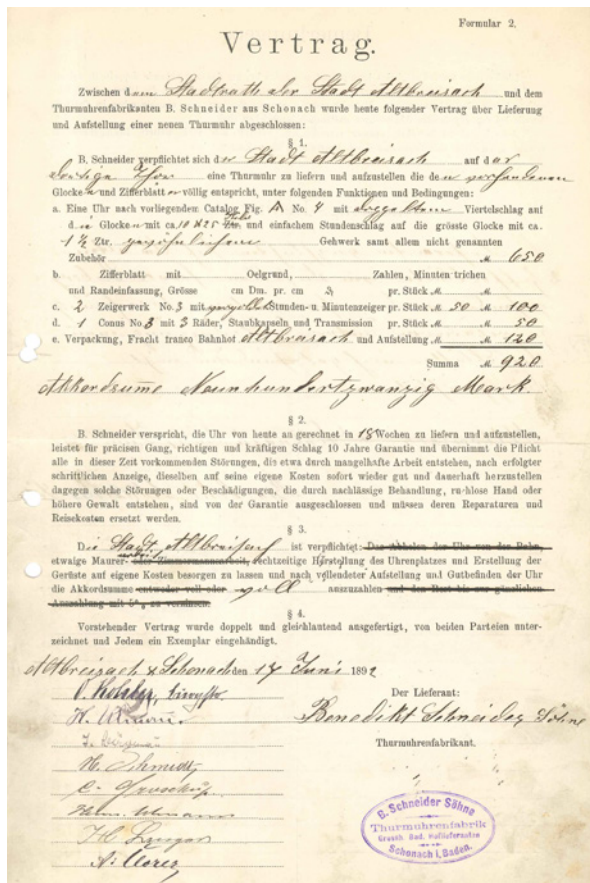 Formular 2.
Vertrag.
Zwischen dem Stadtrath der Stadt Altbreisach und dem
Thurmuhrenfabrikanten B. Schneider aus Schonach wurde heute folgender Vertrag über Lieferung
und Aufstellung einer neuen Thurmuhr abgeschlossen:
§ 1.
B. Schneider verpflichtet sich der Stadt Altbreisach auf dar
dortige Thor eine Thurmuhr zu liefern und aufzustellen die den vorhandenen
Glocken und Zifferblättern völlig entspricht, unter folgenden Funktionen und Bedingungen:
a. Eine Uhr nach vorliegendem Catalog Fig. A No. 4 mit doppeltem Viertelschlag auf
die Glocken mit ca. 10 & 25 Kilo und einfachem Stundenschlag auf die grösste Glocke mit ca.
1 ½ Ztr. gewöhnlichem Gehwerk samt allem nicht genannten
Zubehör M. 650
b. Zifferblatt mit Oelgrund, Zahlen, Minuten strichen
und Randeinfassung, Grösse cm Dm. pr. cm pr. Stück M. M.
c. 2 Zeigerwerk No. 3 mit vergoldet Stunden- u. Minutenzeiger pr. Stück M. 50 M. 100
d. 1 Conus No. 3 mit 3 Räder, Staubkapseln und Transmission pr. Stück M. M. 50
e. Verpackung, Fracht franco Bahnhof Altbreisach und Aufstellung M. M. 120
Summa M. 920
Akkordsumme Neunhundertzwanzig Mark.
§ 2.
B. Schneider verspricht, die Uhr von heute an gerechnet in 18 Wochen zu liefern und aufzustellen,
leistet für präcisen Gang, richtigen und kräftigen Schlag 10 Jahre Garantie und übernimmt die Pflicht
alle in dieser Zeit vorkommenden Störungen, die etwa durch mangelhafte Arbeit entstehen, nach erfolgter
schriftlichen Anzeige, dieselben auf seine eigene Kosten sofort wieder gut und dauerhaft herzustellen
dagegen solche Störungen oder Beschädigungen, die durch nachlässige Behandlung, ruchlose Hand oder
höhere Gewalt entstehen, sind von der Garantie ausgeschlossen und müssen deren Reparaturen und
Reisekosten ersetzt werden.
§ 3.
Die Stadt Altbreisach ist verpflichtet: Das Abholen der Uhr von der Bahn,
etwaige Maurer- oder Zimmermannarbeit, rechtzeitige Herstellung des Uhrenplatzes und Erstellung der
Gerüste auf eigene Kosten besorgen zu lassen und nach vollendeter Aufstellung und Gutbefinden der Uhr
die Akkordsumme entweder voll oder voll auszuzahlen und den Rest bis zur gänzlichen
Auszahlung mit 5% zu verzinsen.
§ 4.
Vorstehender Vertrag wurde doppelt und gleichlautend ausgefertigt, von beiden Parteien unter-
zeichnet und Jedem ein Exemplar eingehändigt.
Altbreisach & Schonach den 17 Juni 1892
Der Lieferant:
Benedikt Schneider Söhne
Thurmuhrenfabrikant.
H. Schmidt
B. Schneider Söhne
Thurmuhrenfabrik
Grossh. Bad. Hoflieferanten
Schonach i. Baden.